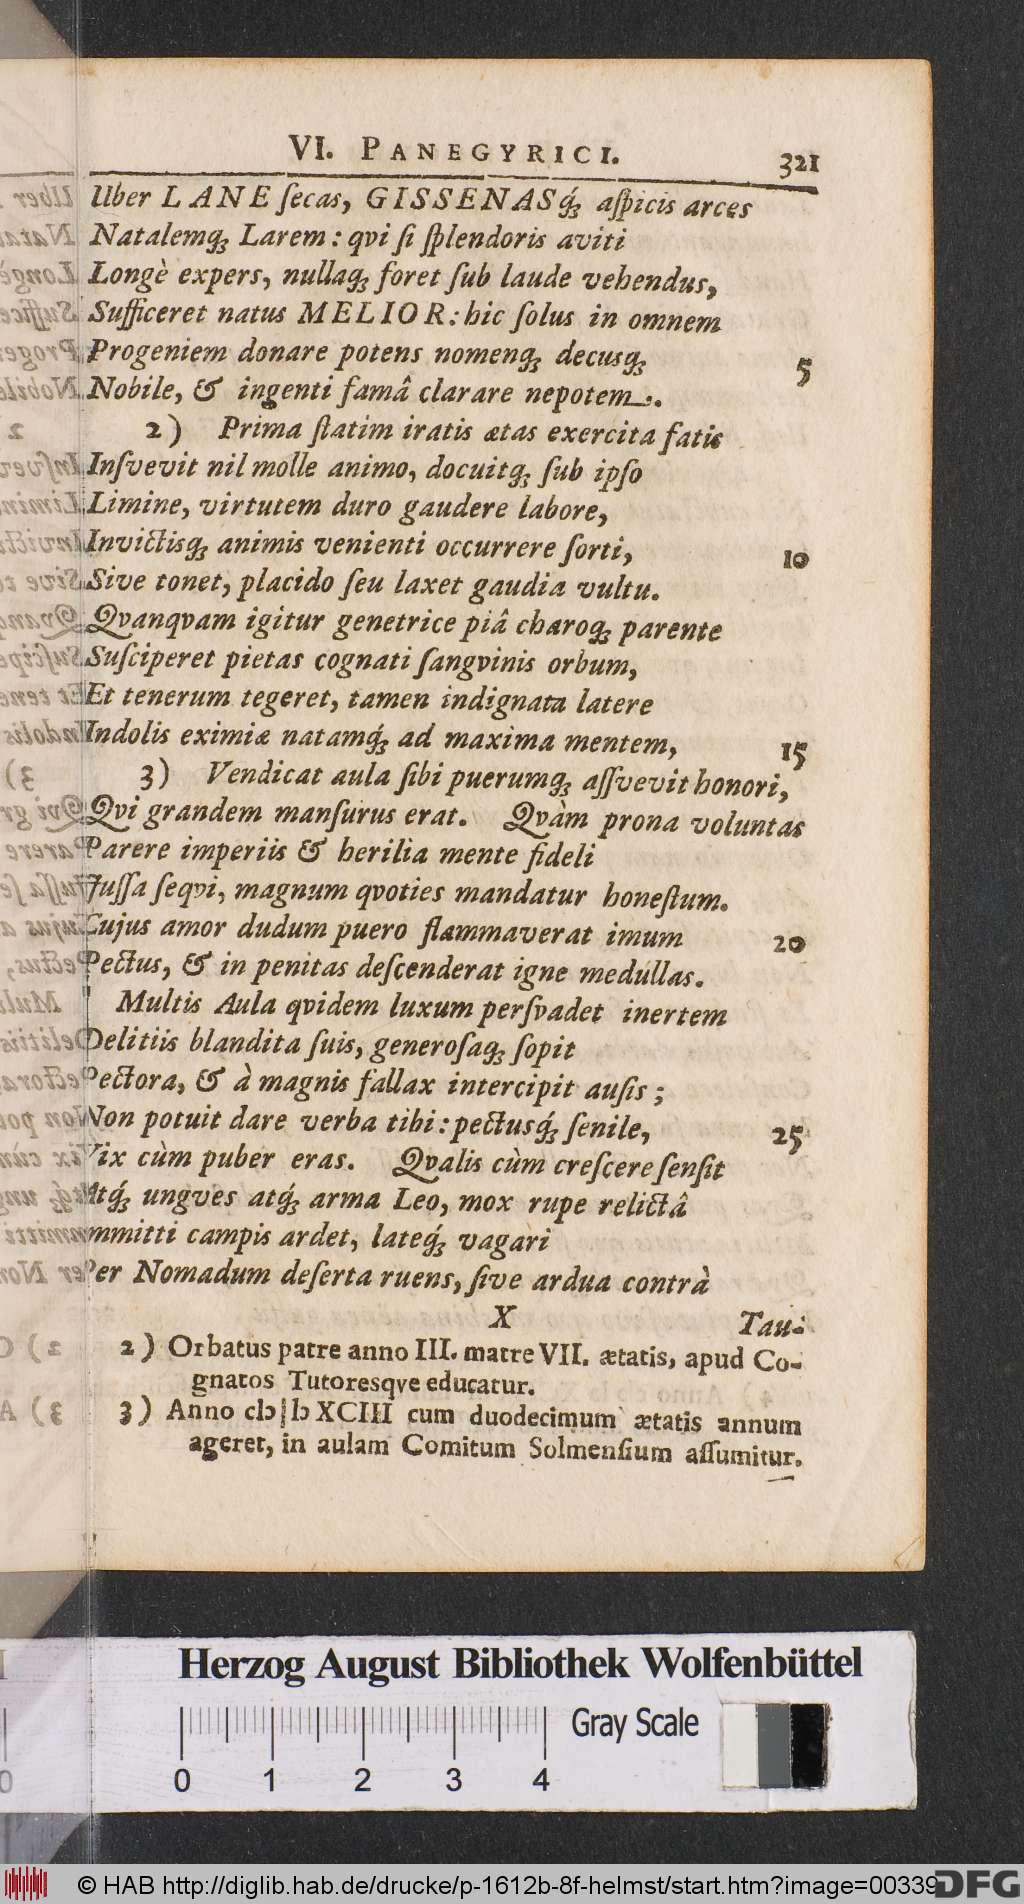 VI. PANEGYRICI. 321
Uber LANE ſecas, GISSENASq́; aſpicis arces
Natalemq; Larem: qvi ſi ſplendoris aviti
Longè expers, nullaq; foret ſub laude vehendus,
Sufficeret natus MELIOR: hic ſolus in omnem
Progeniem donare potens nomenq; decusq; 5
Nobile, & ingenti famâ clarare nepotem.
2) Prima ſtatim iratis ætas exercita fatis
Inſvevit nil molle animo, docuitq; ſub ipſo
Limine, virtutem duro gaudere labore,
Invictisq; animis venienti occurrere ſorti, 10
Sive tonet, placido ſeu laxet gaudia vultu.
Qvanqvam igitur genetrice piâ charoq; parente
Suſciperet pietas cognati ſangvinis orbum,
Et tenerum tegeret, tamen indignata latere
Indolis eximiæ natamq́; ad maxima mentem, 15
3) Vendicat aula ſibi puerumq; aſſvevit honori,
Qvi grandem manſurus erat. Qvàm prona voluntas
Parere imperiis & herilia mente fideli
Juſſa ſeqvi, magnum qvoties mandatur honeſtum.
Cujus amor dudum puero flammaverat imum 20
Pectus, & in penitas deſcenderat igne medullas.
Multis Aula qvidem luxum perſvadet inertem
Delitiis blandita ſuis, generoſaq; ſopit
Pectora, & à magnis fallax intercipit auſis;
Non potuit dare verba tibi: pectusq́; ſenile, 25
Vix cùm puber eras. Qvalis cùm creſcere ſenſit
Atq́; ungves atq́; arma Leo, mox rupe relictâ
mmitti campis ardet, lateq́; vagari
Per Nomadum deſerta ruens, ſive ardua contrà
X Tau-
2) Orbatus patre anno III. matre VII. ætatis, apud Co-
gnatos Tutoresqve educatur.
3) Anno cIɔ Iɔ XCIII cum duodecimum ætatis annum
ageret, in aulam Comitum Solmenſium aſſumitur.
Herzog August Bibliothek Wolfenbüttel
Gray Scale
0 1 2 3 4
© HAB http://diglib.hab.de/drucke/p-1612b-8f-helmst/start.htm?image=00339
DFG